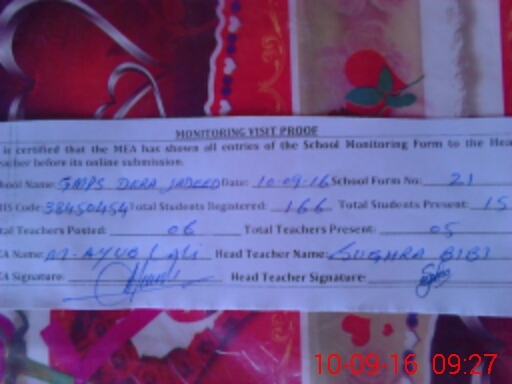 MONITORING VISIT PROOF
is certified that the MEA has shown all entries of the School Monitoring Form to the Hea
acher before its online submission.
hool Name: GMPS DERA JADEED Date: 10-09-16 School Form No: 21
IS Code: 38450454 Total Students Registered: 166 Total Students Present: 15
tal Teachers Posted: 06 Total Teachers Present: 05
EA Name: M. AYUB Head Teacher Name: SUGHRA BIBI
EA Signature: Head Teacher Signature:
10-09-16 09:27